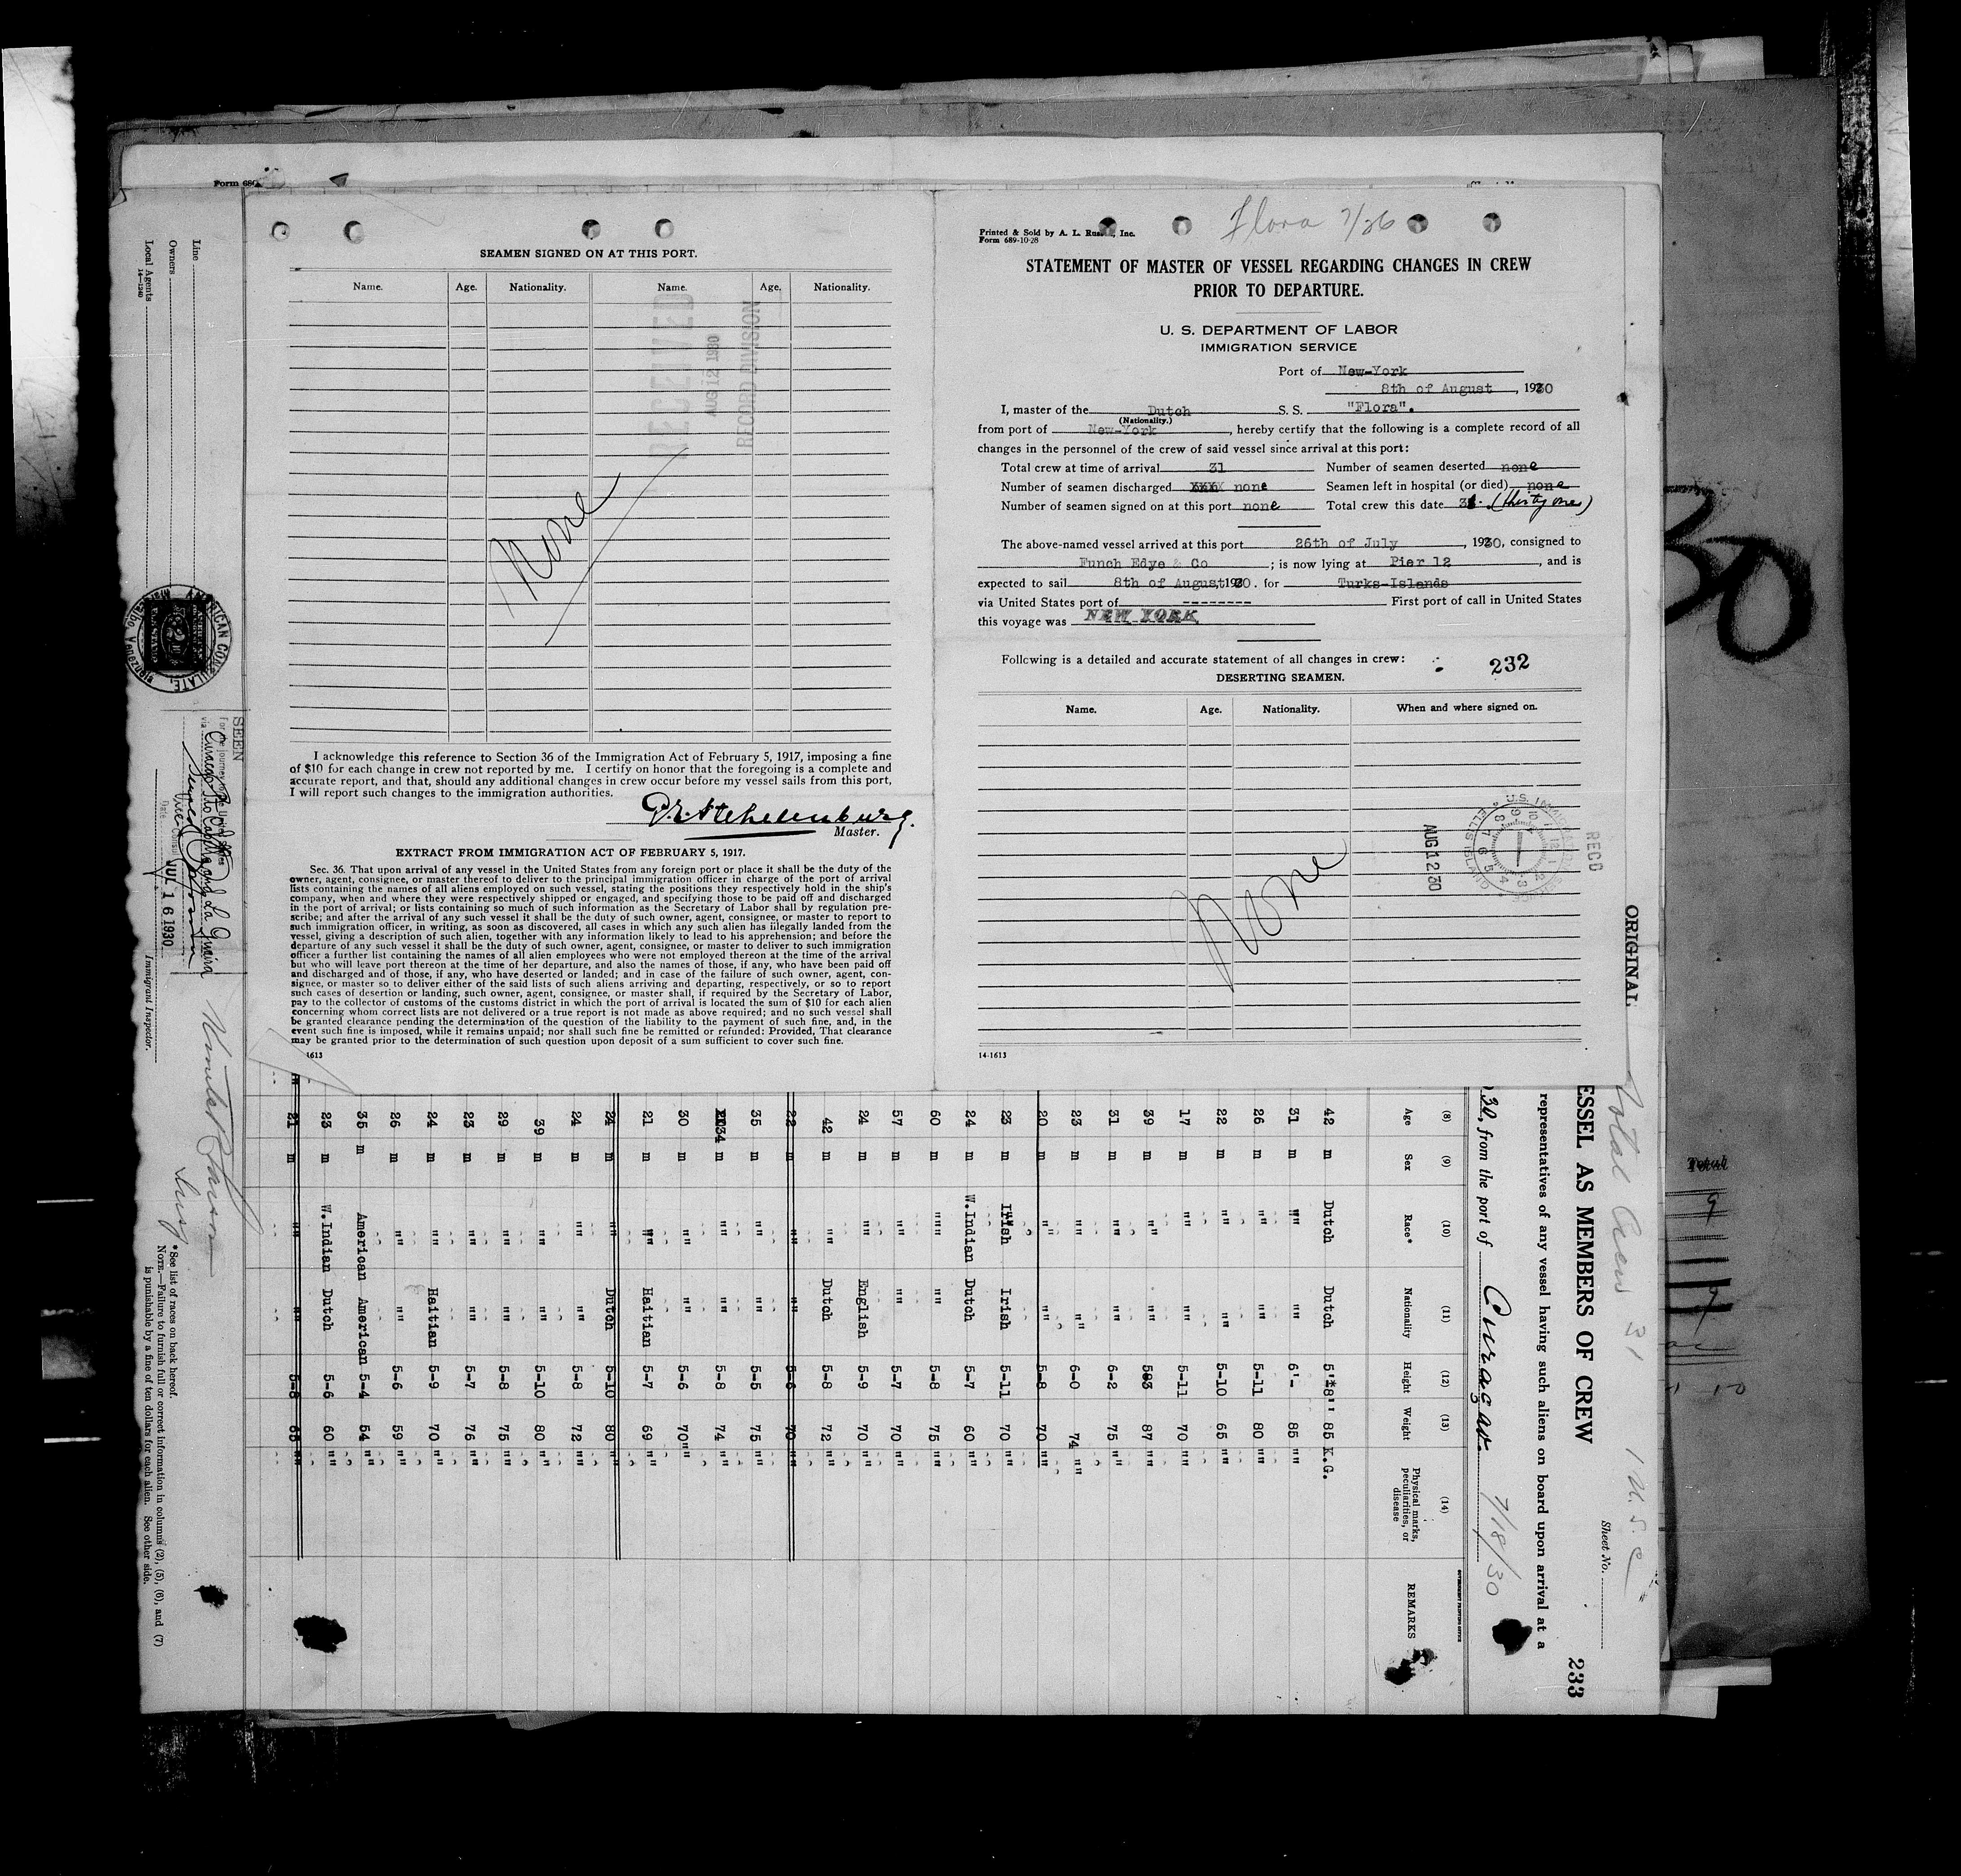 Form 680
SEAMEN SIGNED ON AT THIS PORT.
Name. Age. Nationality. Name. Age. Nationality.
RECEIVED
AUG 12 1930
RECORD DIVISION
None
I acknowledge this reference to Section 36 of the Immigration Act of February 5, 1917, imposing a fine
of $10 for each change in crew not reported by me. I certify on honor that the foregoing is a complete and
accurate report, and that, should any additional changes in crew occur before my vessel sails from this port,
I will report such changes to the immigration authorities.
Master.
EXTRACT FROM IMMIGRATION ACT OF FEBRUARY 5, 1917.
Sec. 36. That upon arrival of any vessel in the United States from any foreign port or place it shall be the duty of the
owner, agent, consignee, or master thereof to deliver to the principal immigration officer in charge of the port of arrival
lists containing the names of all aliens employed on such vessel, stating the positions they respectively hold in the ship's
company, when and where they were respectively shipped or engaged, and specifying those to be paid off and discharged
in the port of arrival; or lists containing so much of such information as the Secretary of Labor shall by regulation pre-
scribe; and after the arrival of any such vessel it shall be the duty of such owner, agent, consignee, or master to report to
such immigration officer, in writing, as soon as discovered, all cases in which any such alien has illegally landed from the
vessel, giving a description of such alien, together with any information likely to lead to his apprehension; and before the
departure of any such vessel it shall be the duty of such owner, agent, consignee, or master to deliver to such immigration
officer a further list containing the names of all alien employees who were not employed thereon at the time of the arrival
but who will leave port thereon at the time of her departure, and also the names of those, if any, who have been paid off
and discharged and of those, if any, who have deserted or landed; and in case of the failure of such owner, agent, con-
signee, or master so to deliver either of the said lists of such aliens arriving and departing, respectively, or so to report
such cases of desertion or landing, such owner, agent, consignee, or master shall, if required by the Secretary of Labor,
pay to the collector of customs of the customs district in which the port of arrival is located the sum of $10 for each alien
concerning whom correct lists are not delivered or a true report is not made as above required; and no such vessel shall
be granted clearance pending the determination of the question of the liability to the payment of such fine, and, in the
event such fine is imposed, while it remains unpaid; nor shall such fine be remitted or refunded: Provided, That clearance
may be granted prior to the determination of such question upon deposit of a sum sufficient to cover such fine.
1613
Flora 7/26
Printed & Sold by A. L. Russell, Inc.
Form 689-10-28
STATEMENT OF MASTER OF VESSEL REGARDING CHANGES IN CREW
PRIOR TO DEPARTURE.
U. S. DEPARTMENT OF LABOR
IMMIGRATION SERVICE
Port of New-York
8th of August, 1930
I, master of the Dutch S. S. "Flora".
(Nationality.)
from port of New-York, hereby certify that the following is a complete record of all
changes in the personnel of the crew of said vessel since arrival at this port:
Total crew at time of arrival 31 Number of seamen deserted none
Number of seamen discharged none Seamen left in hospital (or died) none
Number of seamen signed on at this port none Total crew this date 31. (thirty one)
The above-named vessel arrived at this port 26th of July, 1930, consigned to
Funch Edye & Co; is now lying at Pier 12, and is
expected to sail 8th of August, 1930. for Turks-Islands
via United States port of -------- First port of call in United States
this voyage was NEW YORK
Following is a detailed and accurate statement of all changes in crew: 232
DESERTING SEAMEN.
Name. Age. Nationality. When and where signed on.
RECD
U.S. IMMIGRATION SERVICE ELLIS ISLAND
AUG 12 30
None
14-1613
ORIGINAL
Total Crew 31 1 U.S.C
Sheet No.
233
ESSEL AS MEMBERS OF CREW
representatives of any vessel having such aliens on board upon arrival at a
30, from the port of Curaçao 7/18/30
(8) (9) (10) (11) (12) (13) (14)
Age Sex Race* Nationality Height Weight Physical marks, peculiarities, or disease REMARKS
42 m Dutch Dutch 5'*8'' 85 K.G.
31 m "" "" 6'- 85 ""
26 m "" "" 5-11 80 ""
22 m "" "" 5-10 65 ""
17 m "" "" 5-11 70 ""
39 m "" "" 583 87 ""
31 m "" "" 6-2 75 ""
23 m "" "" 6-0 74 ""
20 m "" "" 5-8 70 ""
23 m Irish Irish 5-11 70 ""
24 m W.Indian Dutch 5-7 60 ""
60 m "" "" 5-8 75 ""
57 m "" "" 5-7 70 ""
24 m "" English 5-9 70 ""
42 m "" Dutch 5-8 72 ""
22 m "" "" 5-6 70 ""
35 m "" "" 5-5 75 ""
34 m "" "" 5-8 74 ""
30 m "" "" 5-6 70 ""
21 m "" Haitian 5-7 69 ""
24 m "" Dutch 5-10 80 ""
24 m "" "" 5-8 72 ""
39 m "" "" 5-10 80 ""
29 m "" "" 5-8 75 ""
23 m "" "" 5-7 76 ""
24 m "" Haitian 5-9 70 ""
26 m "" "" 5-6 59 ""
35 m American American 5-4 54 ""
23 m W.Indian Dutch 5-6 60 ""
21 m "" "" 5-8 ""
Line
Owners
Local Agents
14-1240
AMERICAN CONSULATE, Maracaibo Venezuela
SEEN
For the journey to the United States
via Curaçao, Pto Cabello and La Guaira
Vice Consul
Date JUL 16 1930
Immigrant Inspector.
*See list of races on back hereof.
NOTE.—Failure to furnish full or correct information in columns (2), (5), (6), and (7)
is punishable by a fine of ten dollars for each alien. See other side.
30
Total
9
9